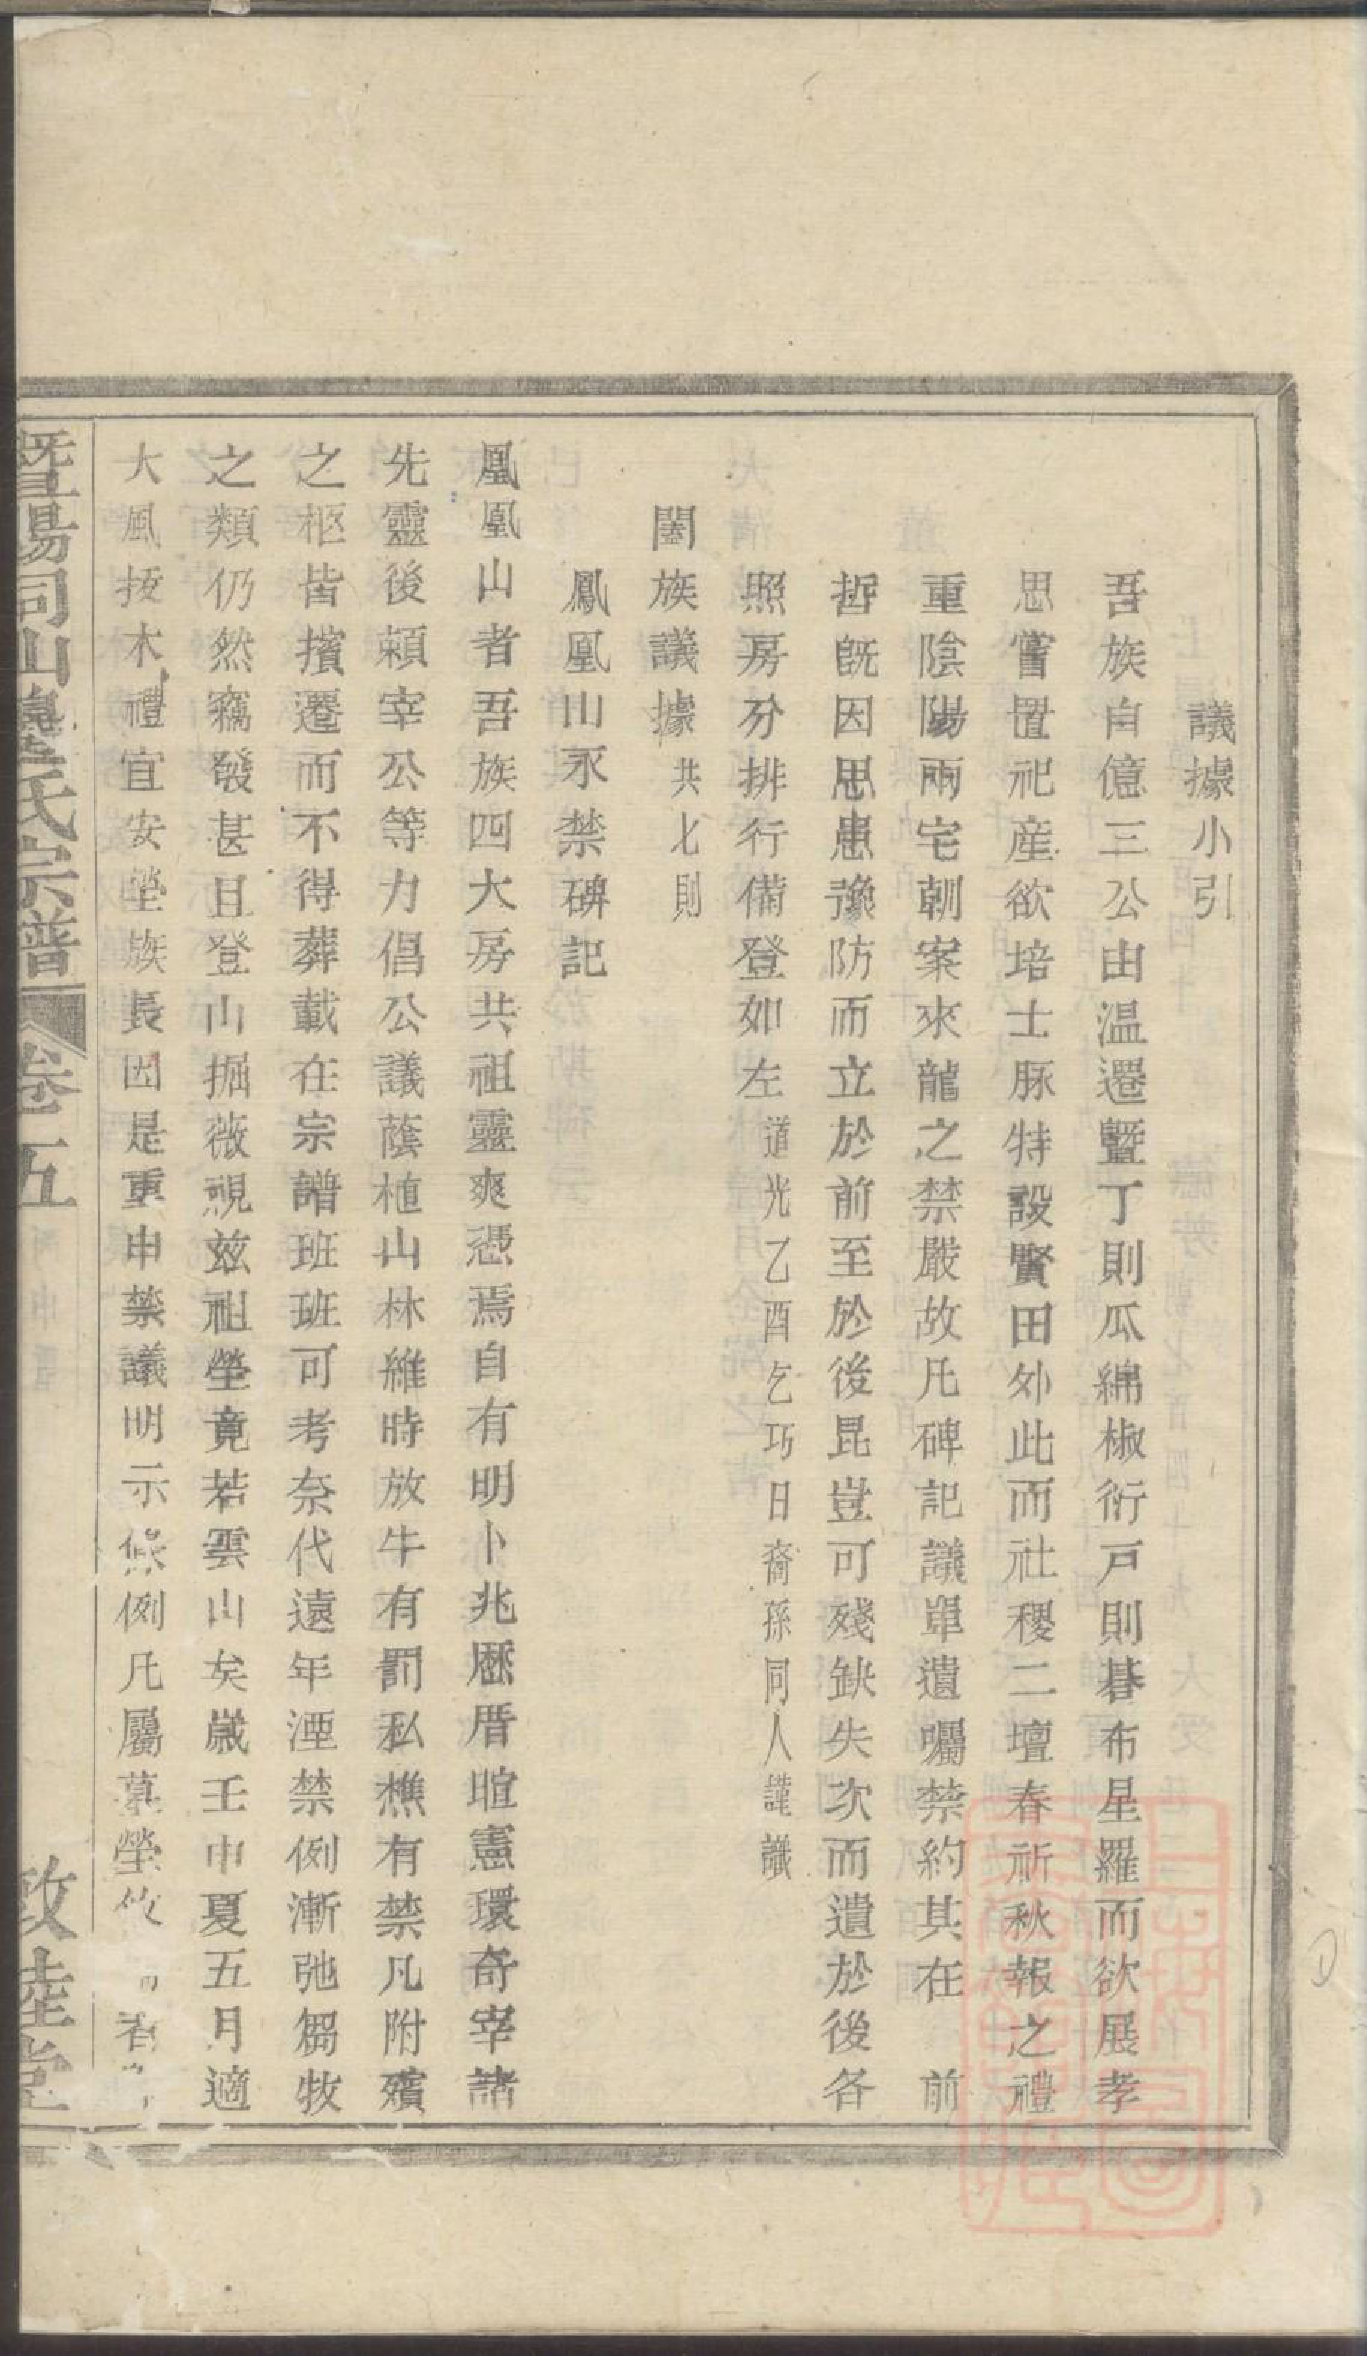 議據小引
吾族自億三公由温遷暨丁則瓜綿椒衍戸則碁布星羅而欲展孝
思嘗置祀産欲培士脉特設賢田外此而社稷二壇春祈秋報之禮
重陰陽兩宅朝案來龍之禁嚴故凡碑記議單遺囑禁約其在　前
哲旣因思患豫防而立於前至於後昆豈可殘缺失次而遺於後各
照房分排行備登如左 道光乙酉乞巧日裔孫同人謹識
闔族議據 共七則
鳳凰山永禁碑記
凰凰山者吾族四大房共祖靈爽憑焉自有明卜兆歴厝暄憲環奇宰諸
先靈後頼宰公等力倡公議蔭植山林維時放牛有罰私樵有禁凡附殯
之柩皆擯遷而不得葬載在宗譜班班可考奈代遠年湮禁例漸弛芻牧
之類仍然竊發甚且登山掘薇視兹祖塋竟若雲山矣歲壬申夏五月適
大風拔木禮宜安塋族長因是重申禁議明示條例凡屬墓塋
暨陽同山邊氏宗譜 卷五 敦睦堂